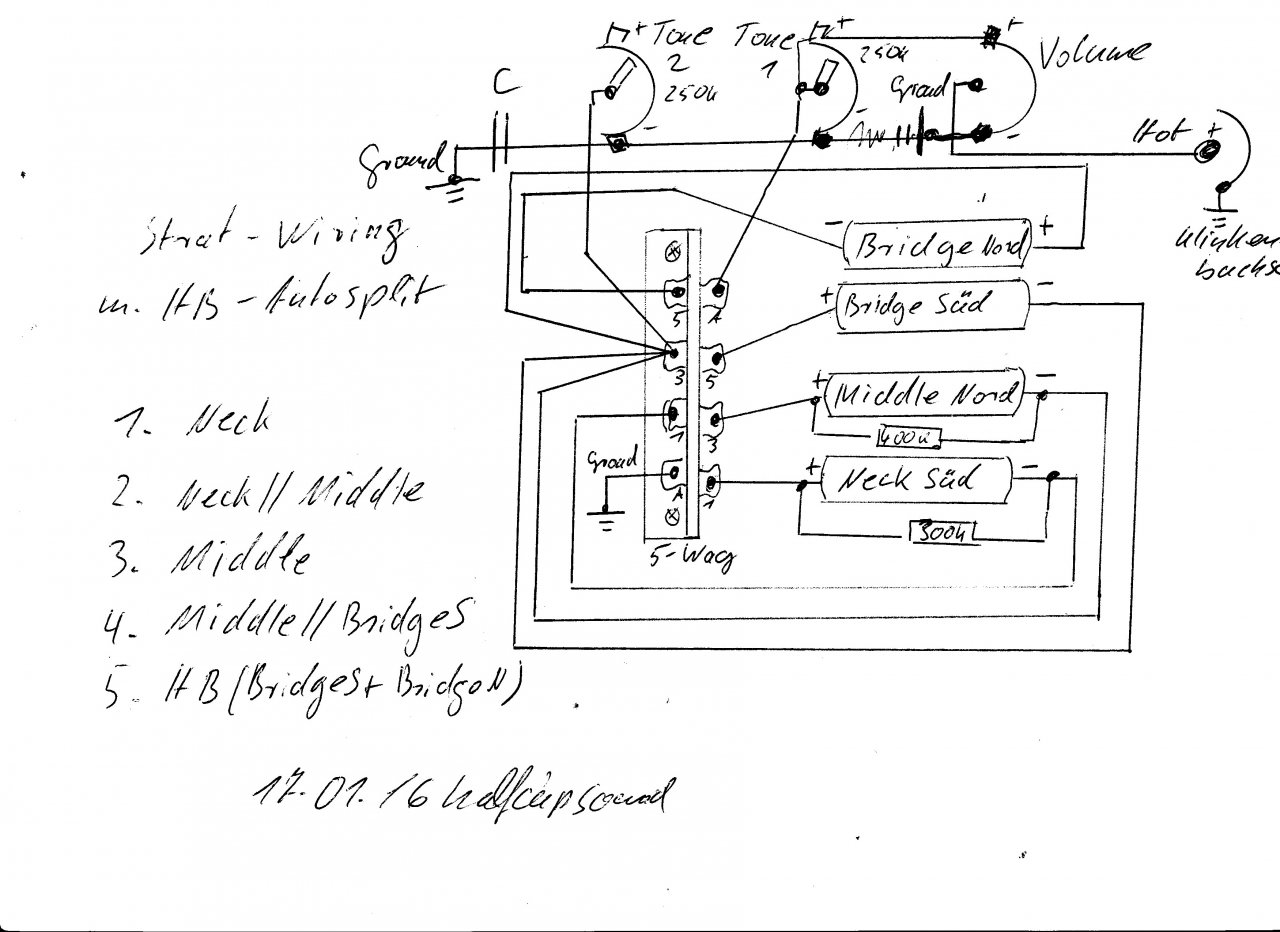 + Tone 2 250k -
Tone 1 + 250k -
+ Volume -
C
Ground
Ground
Hot +
Klinken
buchse
Strat-Wiring
m. HB-Autosplit
- Bridge Nord +
+ Bridge Süd -
+ Middle Nord -
400k
+ Neck Süd -
300k
5 A
3 5
1 3
A 1
Ground
5-Weg
1. Neck
2. Neck // Middle
3. Middle
4. Middle // BridgeS
5. HB (BridgeS + BridgeN)
17.01.16